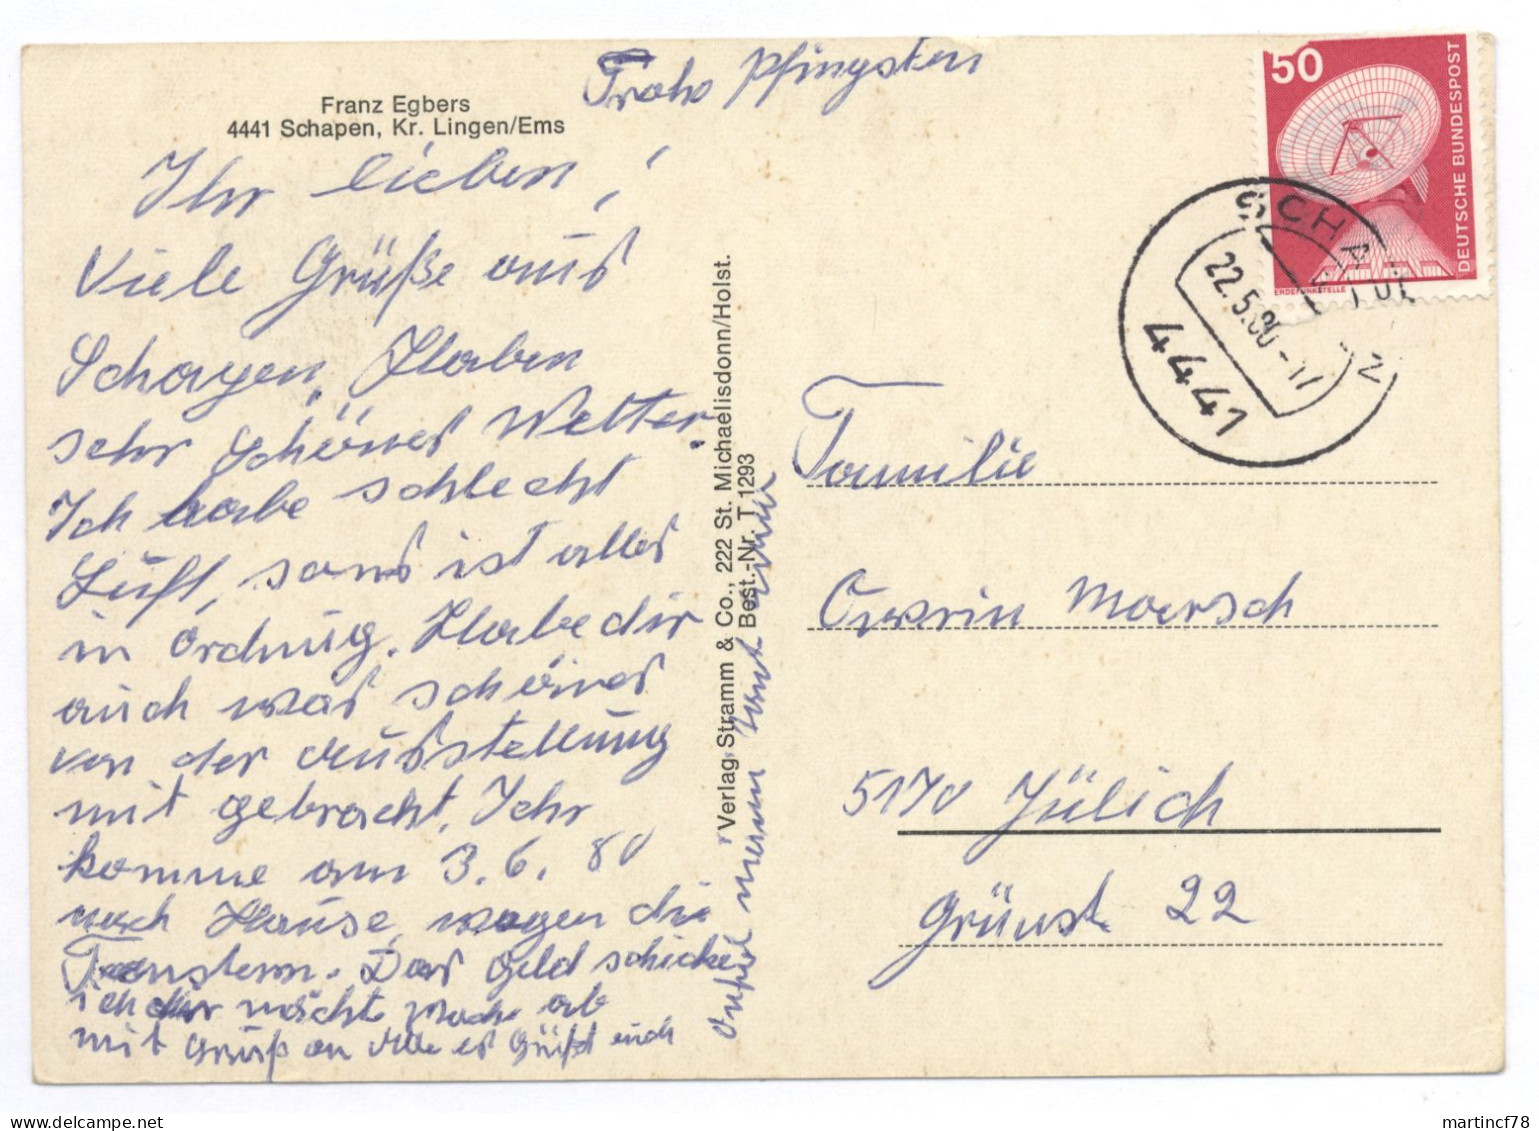 Frohe Pfingsten
Franz Egbers
4441 Schapen, Kr. Lingen/Ems
Ihr lieben!
Viele Grüße aus
Schapen, Haben
sehr schönes Wetter.
Ich habe schlecht
Luft, sons ist alles
in Ordnug. Habe dir
auch was schönes
von der Ausstellung
mit gebracht. Ihr
komme am 3.6.80
nach Hause, wegen die
Fenstern. Das Geld schicke
ich dir nächste Woche ab
mit Gruß an Alle es Grüßt euch
Verlag Stramm & Co., 222 St. Michaelisdonn/Holst.
Best.-Nr. T 1293
50
DEUTSCHE BUNDESPOST
ERDEFUNKSTELLE
SCHAPEN
22.5.80-17
4441
Familie
Moersch
5170 Jülich
Grünst. 22
martincf78